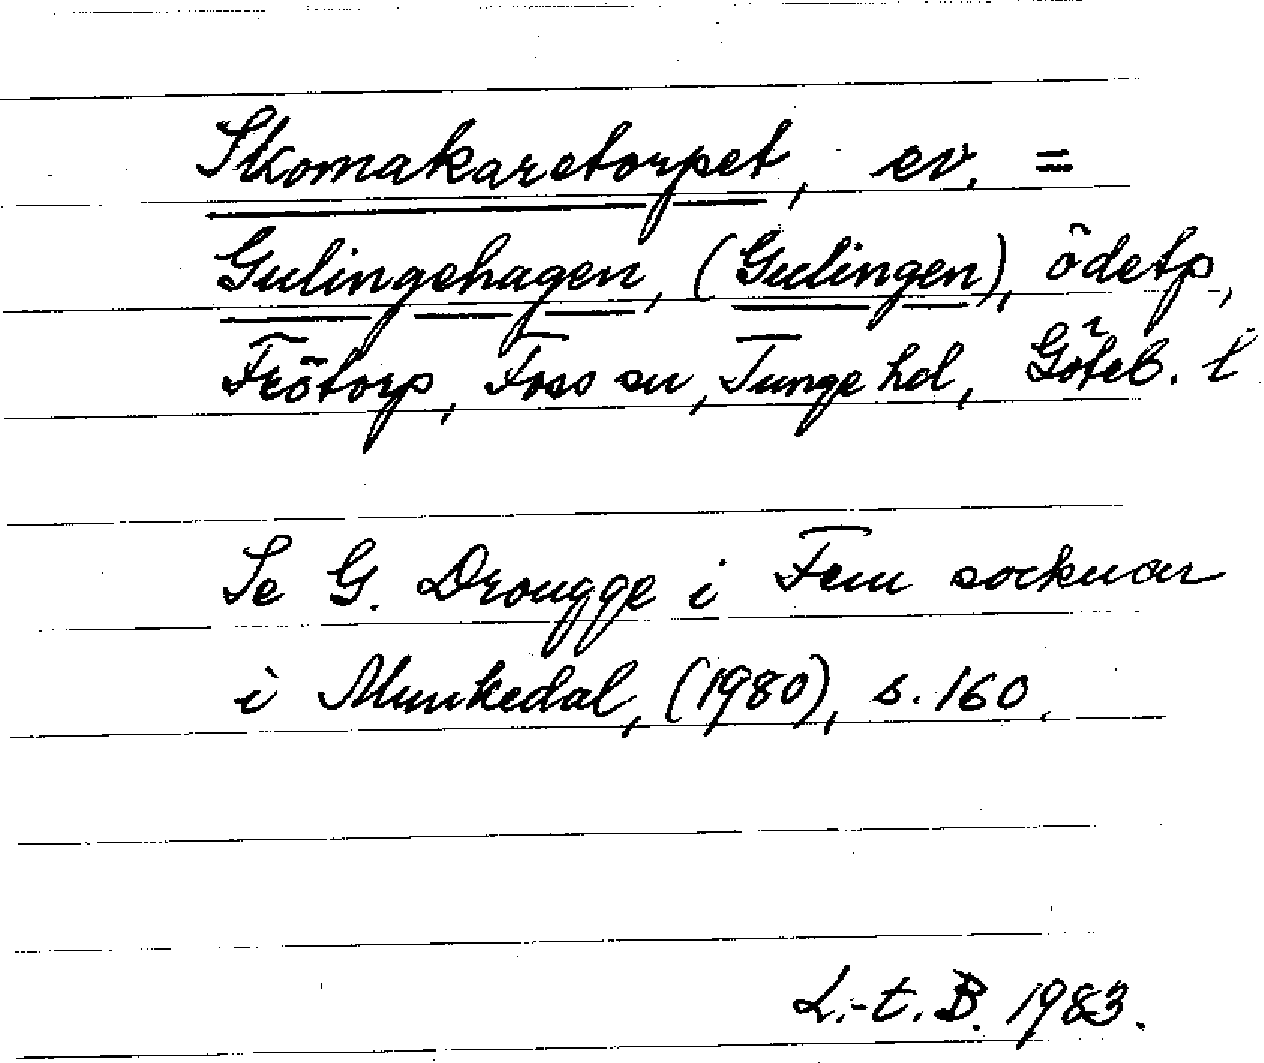 Skomakaretorpet, ev. =
Gulingehagen, (Gulingen), ödetp,
Frötorp, Foss sn, Tunge hd, Göteb. l
Se G. Drougge i Fem socknar
i Munkedal, (1980), s. 160.
L.-t. B. 1983.